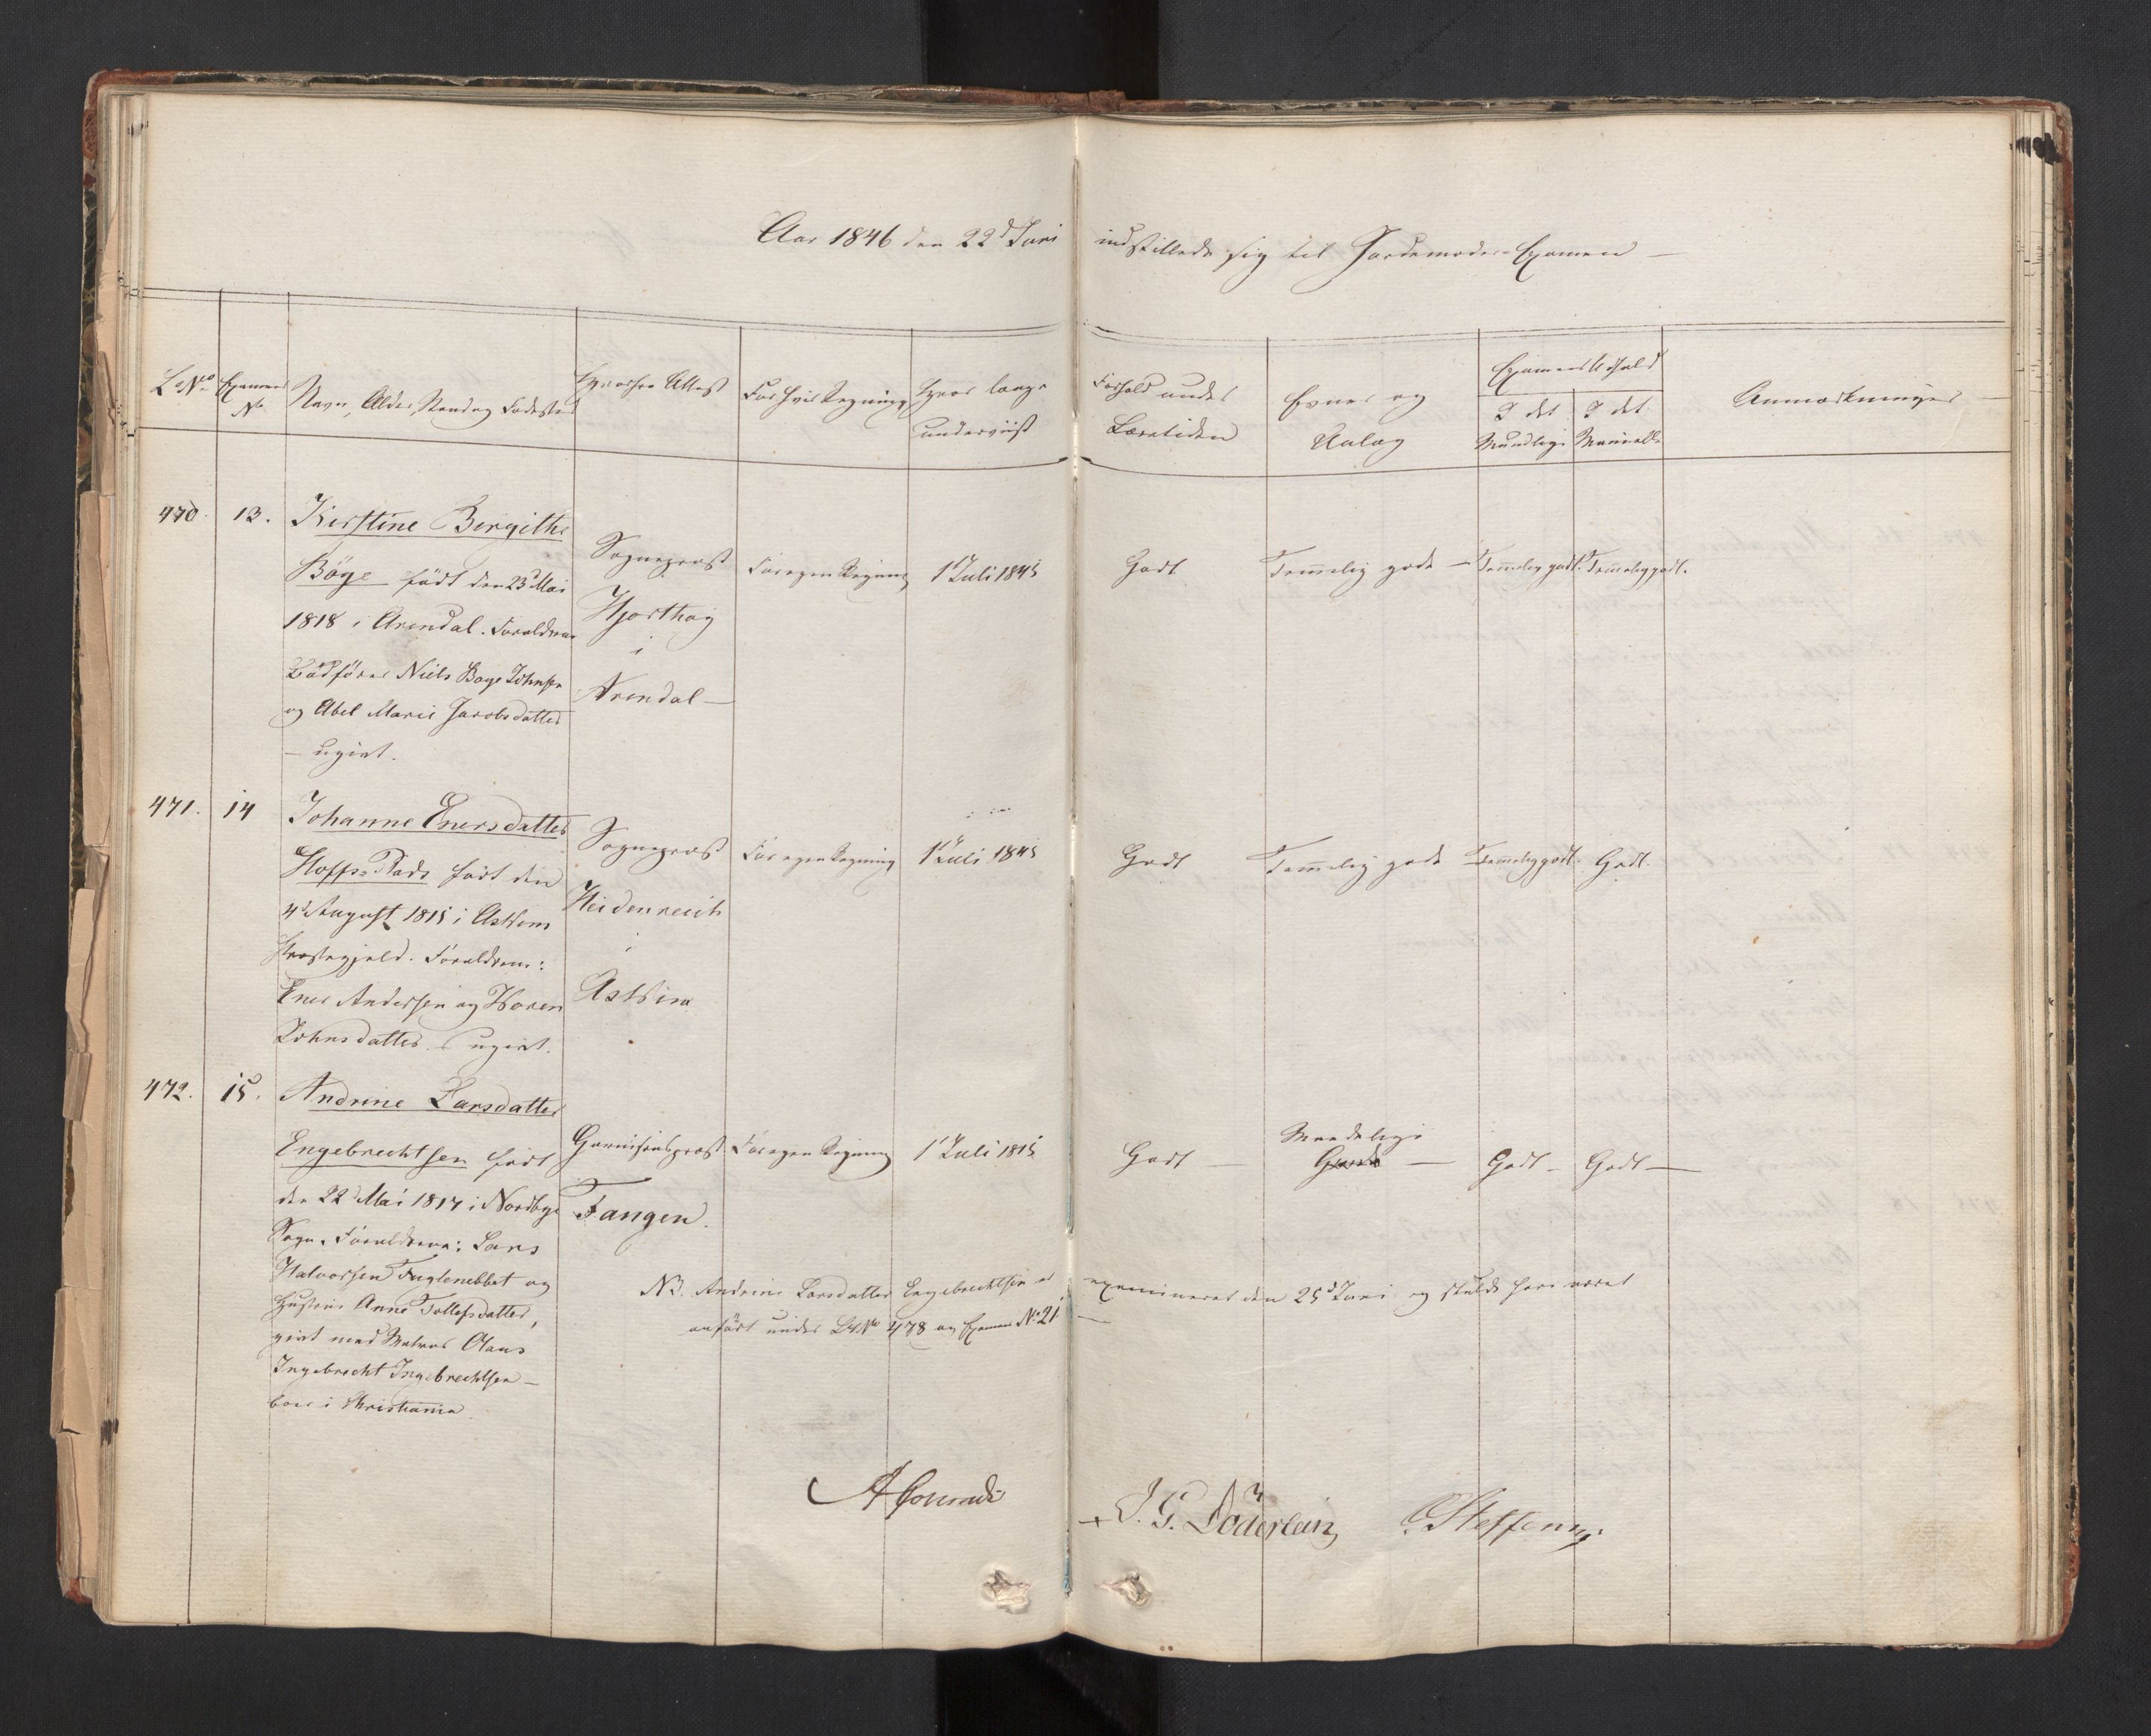 Aar 1846 den 22d Juni indstillede sig til Jordemoder-Examen —
L. No Examens No Navn, Alder, Stand og Fødested Hvorfra Attest For hvis Regning Hvor længe underviist Forhold under Læretiden Evner og Anlæg Examens Udfald I det Mundtlige I det Manuelle Anmærkninger
470. 13. Kirstine Birgithe
Böge födt den 23d Mai
1818 i Arendal. Forældrene
Bödker Niels Boye Johnsen
og Abel Marie Jacobsdatter
— ugivt.
Sogneprest
Hjorthøy
i
Arendal —
For egen Regning
1 Juli 1845
Godt
Temmelig gode —
Temmelig godt.
Temmelig godt.
471. 14 Johanne Enersdatter
Hoffs-Rads födt den
4d August 1815 i Askim
Præstegjeld. Forældrene:
Ener Andersen og Maren
Johnsdatter — ugivt.
Sogneprest
Heidenreich
i
Askim
For egen Regning
1 Juli 1845
Godt
Temmelig gode
Temmelig godt.
Godt.
472. 15. Andrine Larsdatter
Engebrechtsen födt
den 22d Mai 1817 i Nordbye
Sogn. Forældrene: Lars
Halvorsen Fuglenebbet og
Hustrue Anne Tollefsdatter,
givt med Matros Olaus
Ingebrecht Ingebrechtsen —
boer i Christiania
Garnisonsprest
Fangen.
For egen Regning
1 Juli 1845
Godt —
Maadelige
Gode —
Godt —
Godt —
NB. Andrine Larsdatter Engebrechtsen er examineret den 25d Juni og skulde have været
anfört under L. No 478 og Examens No 21 —
A Conradi
J. G. Döderlein
Steffens